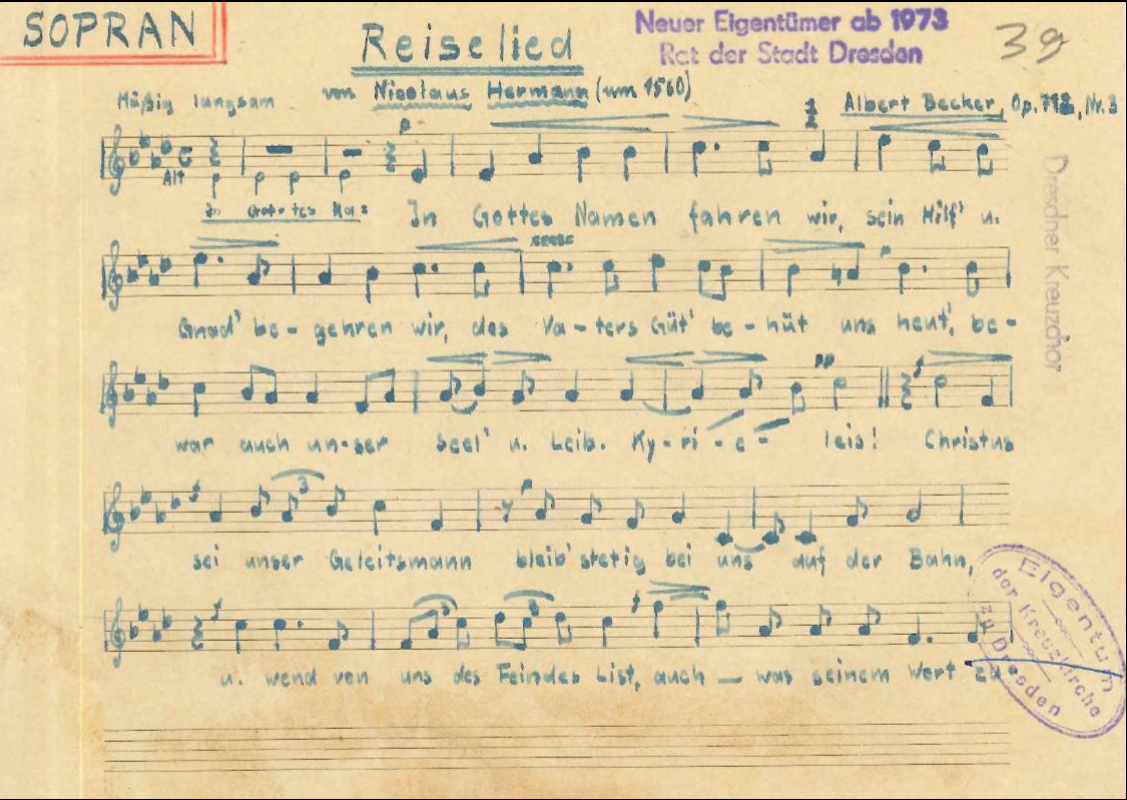 SOPRAN
Neuer Eigentümer ab 1973
Rat der Stadt Dresden
39
Reiselied
von Nicolaus Hermann (um 1560)
Mäßig langsam
Albert Becker, Op. Nr. 3
p
Alt
In Gottes Na=
In Gottes Namen fahren wir, sein Hilf' u.
Gnad' be - gehren wir, des Va - ters Güt' be - hüt uns heut', be -
pp
war auch un-ser Seel' u. Leib. Ky - ri - e - leis! Christus
3
sei unser Geleitsmann bleib' stetig bei uns auf der Bahn,
u. wend von uns des Feindes List, auch — was seinem Wort zu
Dresdner Kreuzchor
Eigentum
der Kreuzkirche
zu Dresden